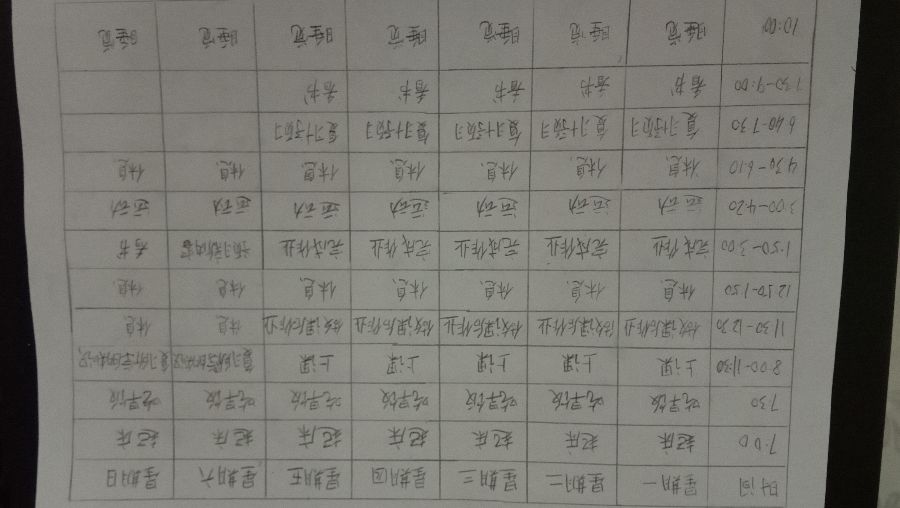 时间 星期一 星期二 星期三 星期四 星期五 星期六 星期日
7:00 起床 起床 起床 起床 起床 起床 起床
7:30 吃早饭 吃早饭 吃早饭 吃早饭 吃早饭 吃早饭 吃早饭
8:00-11:30 上课 上课 上课 上课 上课 复习所学的知识 复习所学的知识
11:30-12:10 做课后作业 做课后作业 做课后作业 做课后作业 做课后作业 休息 休息
12:10-1:50 休息 休息 休息 休息 休息 休息 休息
1:50-3:00 完成作业 完成作业 完成作业 完成作业 完成作业 预习新内容 看书
3:00-4:20 运动 运动 运动 运动 运动 运动 运动
4:30-6:10 休息 休息 休息 休息 休息 休息 休息
6:40-7:30 复习+预习 复习+预习 复习+预习 复习+预习 复习+预习
7:30-9:00 看书 看书 看书 看书 看书
10:00 睡觉 睡觉 睡觉 睡觉 睡觉 睡觉 睡觉